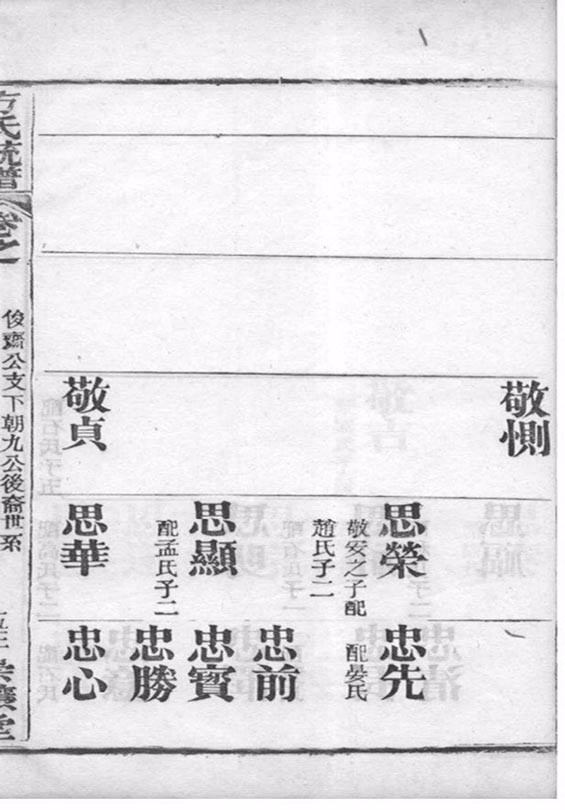 敬惻
敬貞
思榮
敬安之子配
趙氏子二
思顯
配孟氏子二
思華
忠先
配晏氏
忠前
忠寳
忠勝
忠心
方氏統譜
卷之一
俊齋公支下朝九公後裔世系